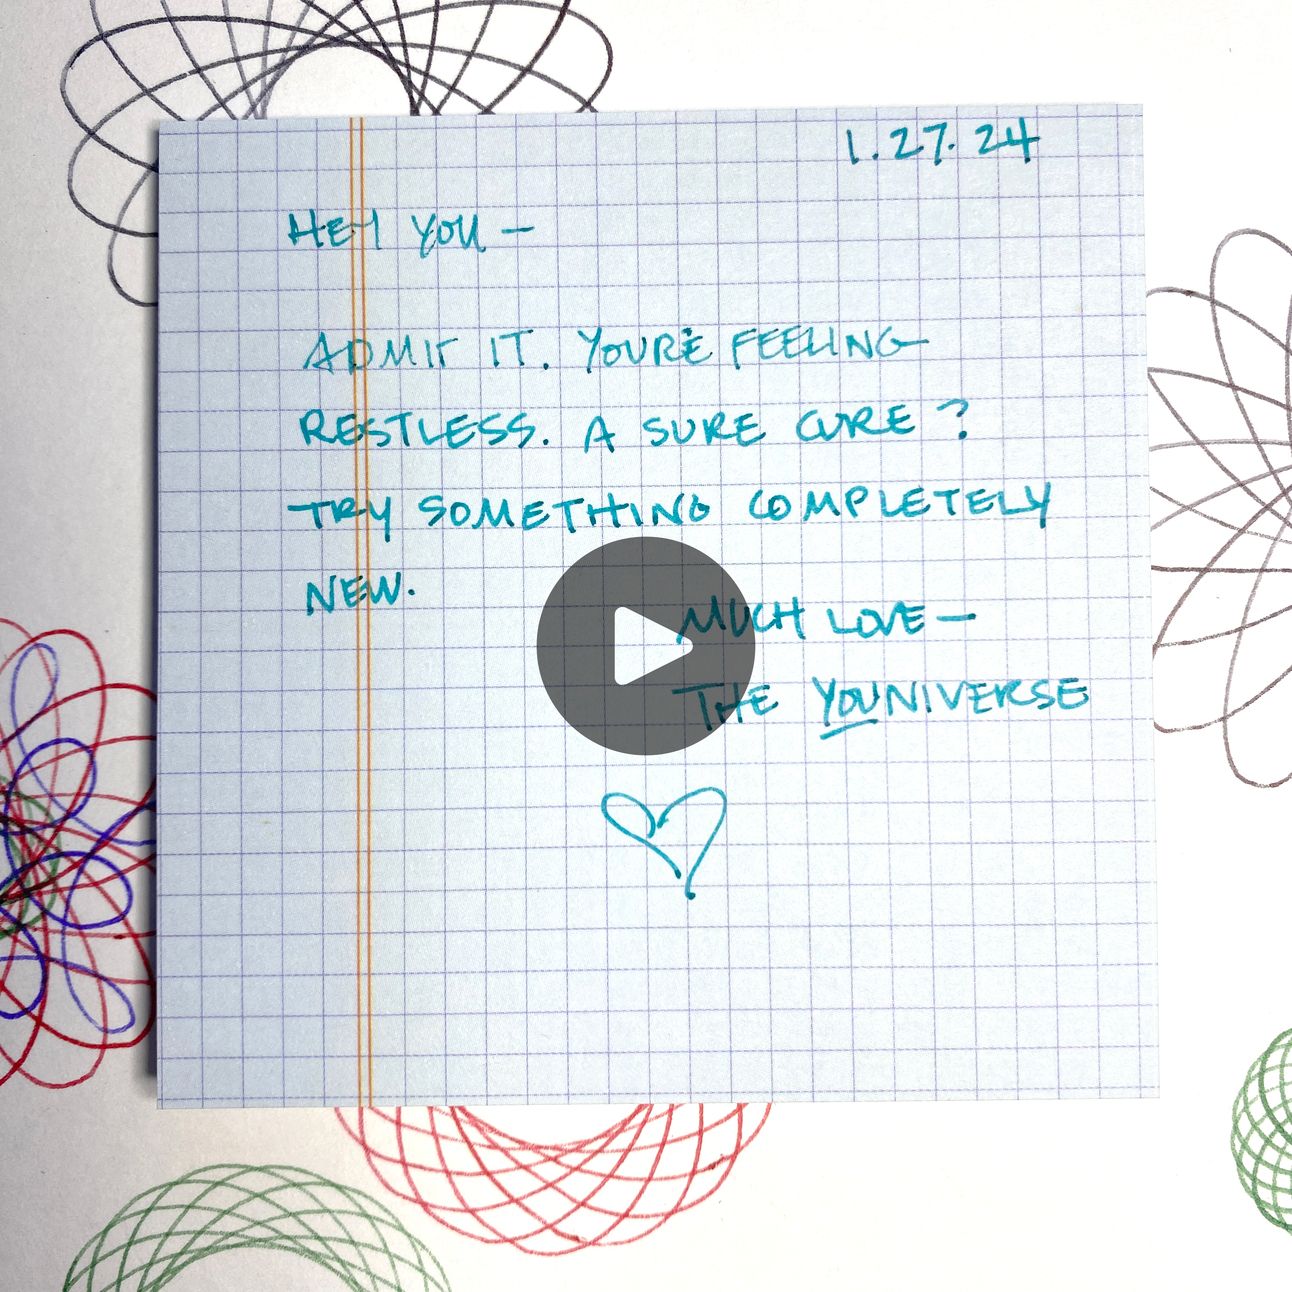 1.27.24
HEY YOU —
ADMIT IT. YOU'RE FEELING
RESTLESS. A SURE CURE?
TRY SOMETHING COMPLETELY
NEW.
MUCH LOVE —
THE YOUNIVERSE